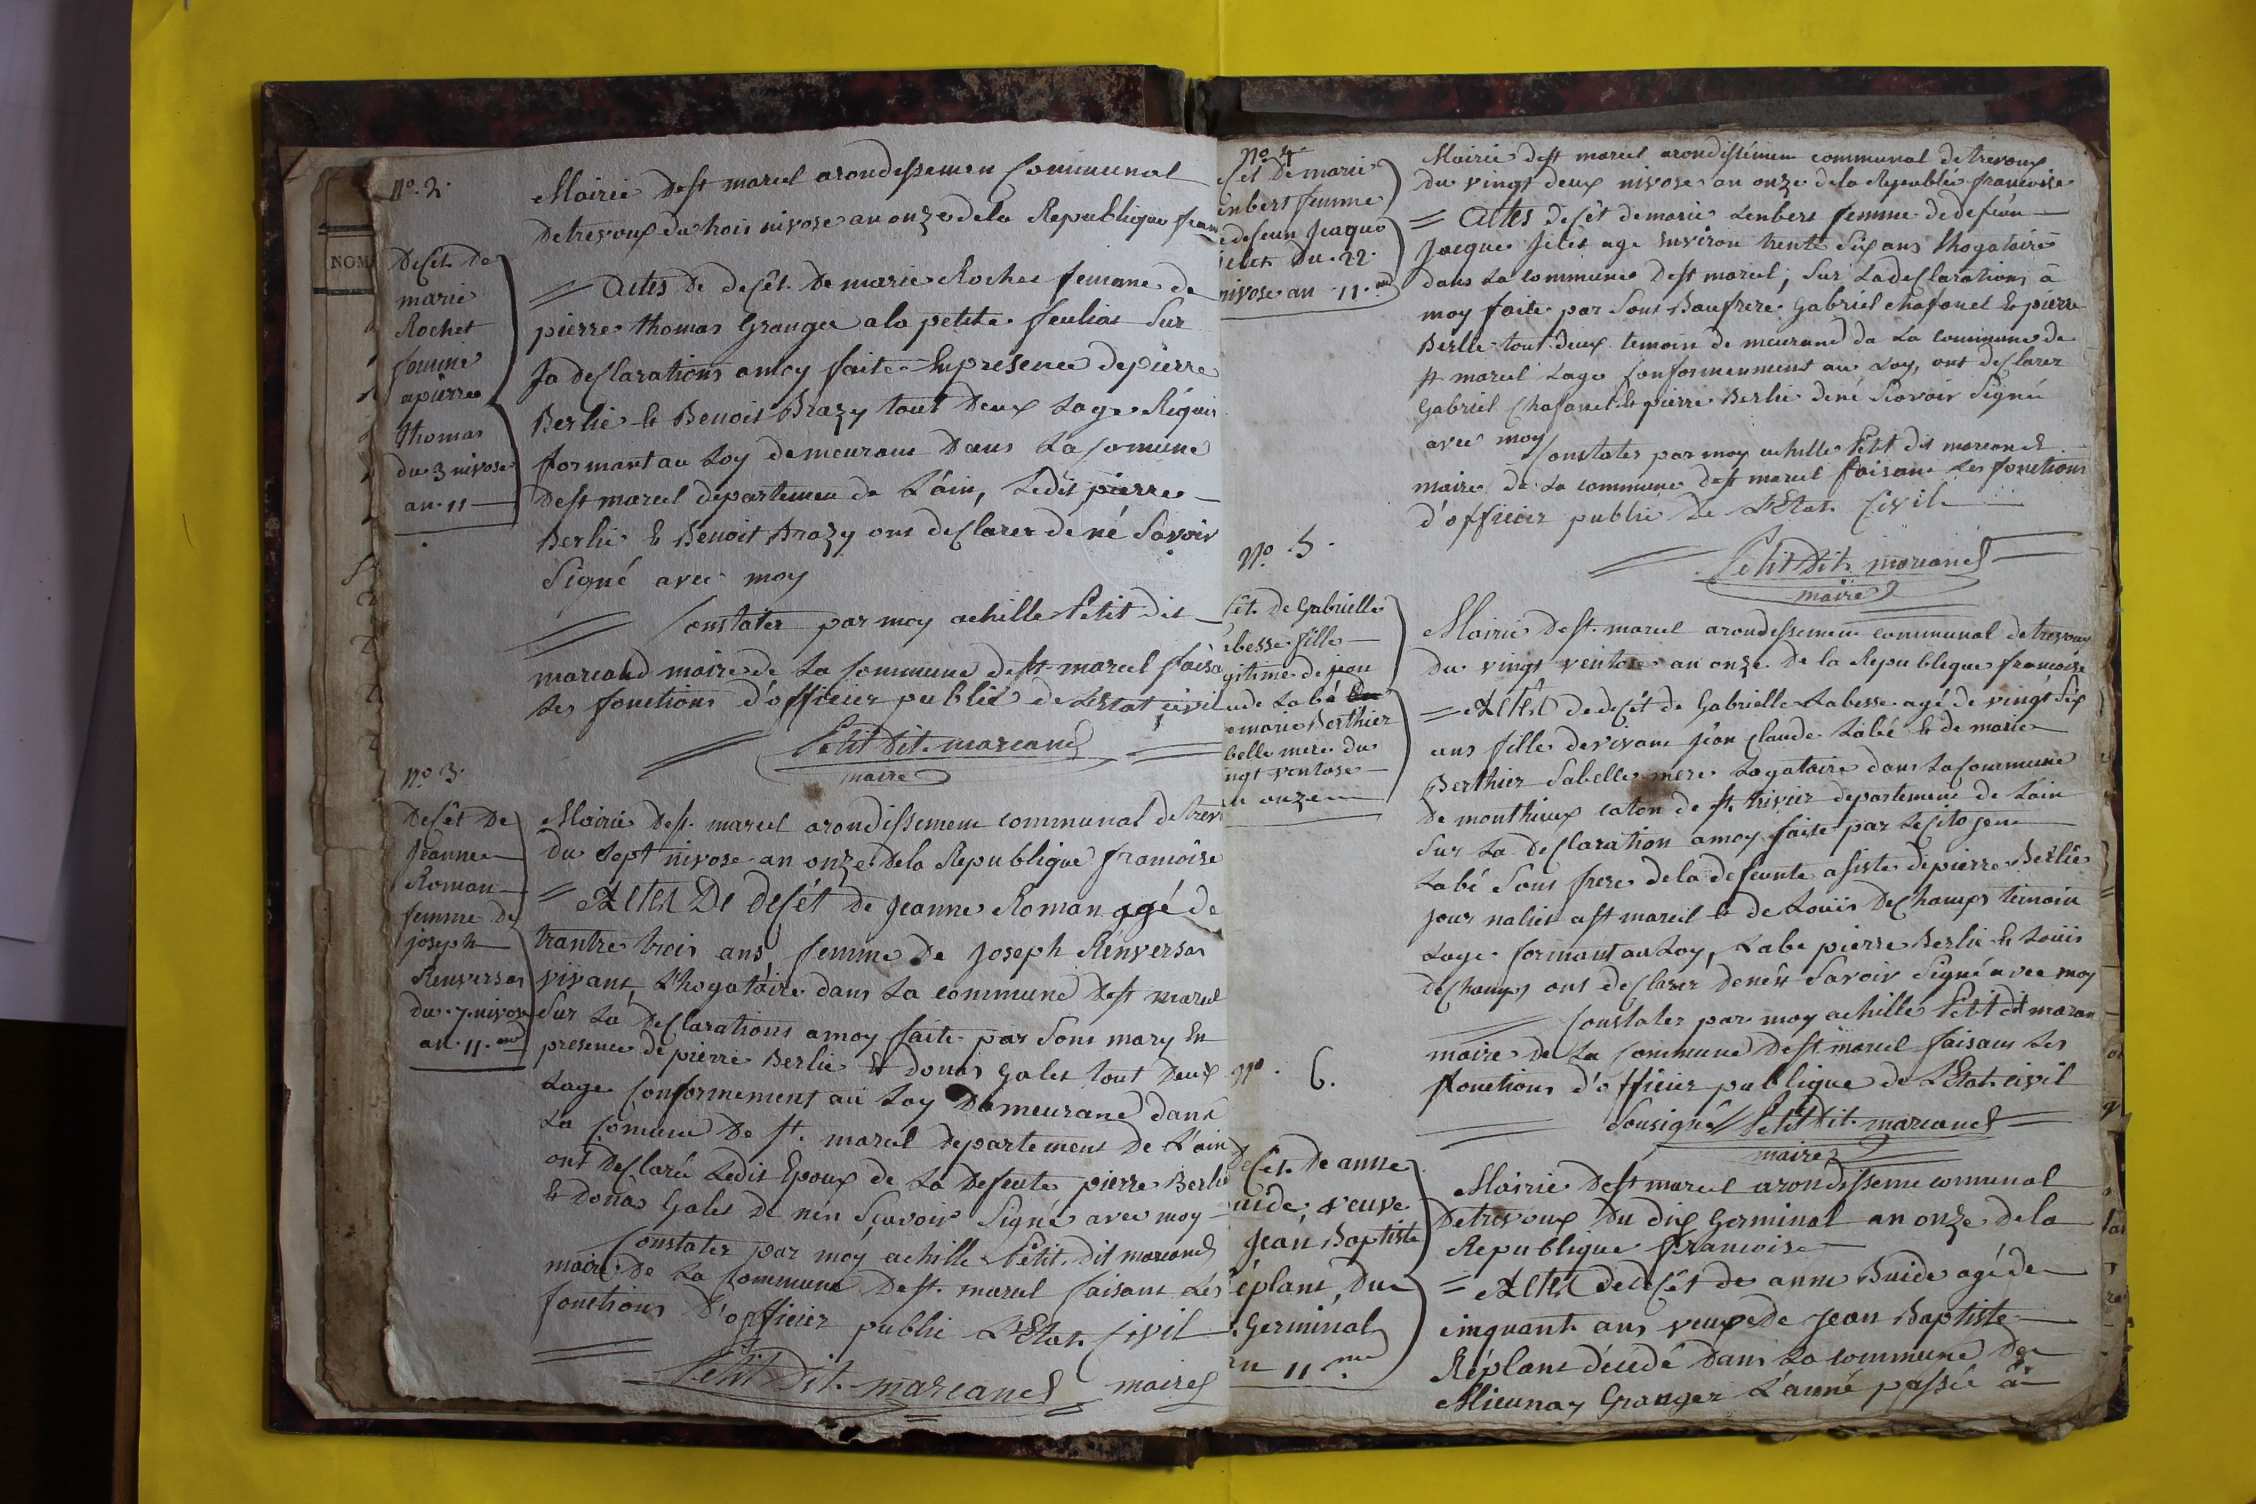 NOM
N.º 2.
Decét De
marie
Rochet
femme
a pierre
thomas
du 3 nivose
an 11
Mairie de st marcel arondissemen Communal
De trevoux du trois nivose an onze de la Republique fran
= Actes De decét De marie Rochet femme de
pierre thomas Granger a la petite feulias Sur
la declarations a moy faite En presence de pierre
Berlie & Benoit Brazy tout Deux Lage Réquis
formant au Loy demeurant Dans La Comune
de st marcel departement de L'ain, Ledit pierre
Berlie & Benoit Brazy ont declarer de né Savoir
Signé avec moy
Constater par moy achille Petit dit
marcand maire de La Commune de st marcel faisa
Les fonctions d'officier public de L'Estat civil
Petit Dit marcand
maire
N.º 3.
Decét De
Jeanne
Roman
femme De
joseph
Renversat
du 7 nivose
an 11.me
Mairie de st. marcel arondissement communal de trev
Du Sept nivose an onze De la Republique francoise
= Actes De decét de Jeanne Roman agé de
trantre trois ans, femme De Joseph Renversat
vivant, Lhogataire dans La commune de st marcel
Sur La Declarations a moy faite par Sont mary En
presence de pierre Berlie & donas Galet tout Deux
Lage Conformement au Loy Demeurand dans
La Comune De st. marcel departement De L'ain
ont Declaré Ledit Epoux de La Defeute pierre Berlie
& donas Galet De nen Scavoir Signé avec moy
Constater par moy achille Petit dit marcand
maire De La Commune De st. marcel faisant Les
fonctions D'officier public L'Etat Civil
Petit Dit. marcand maire
N.º 4
cét De marie
enbert femme
de defeun Jcaque
du 22
nivose an 11.me
Mairie de st marcel arondissemen communal de trevoux
du vingt deux nivose an onze de la Republi francoise
= Actes decét de marie Lenbert femme de defeun
Jacque agé Environ trente Six ans Lhogataire
dans La commune de st marcel, Sur La declarations a
moy faite par Sont Baufrere Gabriel Chafanel & pierre
Berlie tout deux temoin de meurand da La commune de
st marcel Lage Conformenment au Loy, ont declarer
Gabriel Chafanel & pierre Berlie de né Scavoir Signé
avec moy
Constater par moy achille Petit dit marcand
maire de La commune de st marcel faisant Les fonctions
d'officier public De L'Etat Civil
Petit Dit. marcand
maire
N.º 5.
cét De Gabrielle
abesse fille
gitime de jean
ude Labé
marie Berthier
belle mere du
ngt ventose
an onze
Mairie de st. marcel arondissement communal de trevoux
Du vingt ventose an onze De la Republeque francoise
= Actes de decét de Gabrielle Labesse agé de vingt Six
ans fille de vivant jean Claude Labé & de marie
Berthier Sa belle mere Logataire dans La Commune
De monthieux caton de st. trivier departement de Lain
Sur La declaration a moy faite par Le citoyen
Labé Sont frere de la defeunte asiste de pierre Berlie
jour nalier a st marcel & de Louis Dechamps temoin
Lage formant au Loy, Labe pierre Berlie & Louis
dechamps ont declarer de nén Savoir Signé avec moy
Constater par moy achille Petit dit marcan
maire de La Commune de st marcel faisant Les
fonctions d'officier publique de L'Etat civil
Sousigné Petit Dit. marcand
maire
N.º 6.
Decét. De anne
uide, veuve
Jean Baptiste
éplant, Du
Germinal
an 11.me
Mairie de st marcel arondisseme comunal
De trevoux Du dix Germinal an onze de la
Republique francoise
= Actes de decét de anne Buide agé de
cinquante ans veuve De Jean Baptiste
Réplant décédé Dans La commune De
Mieunay Granger L'anné passée a